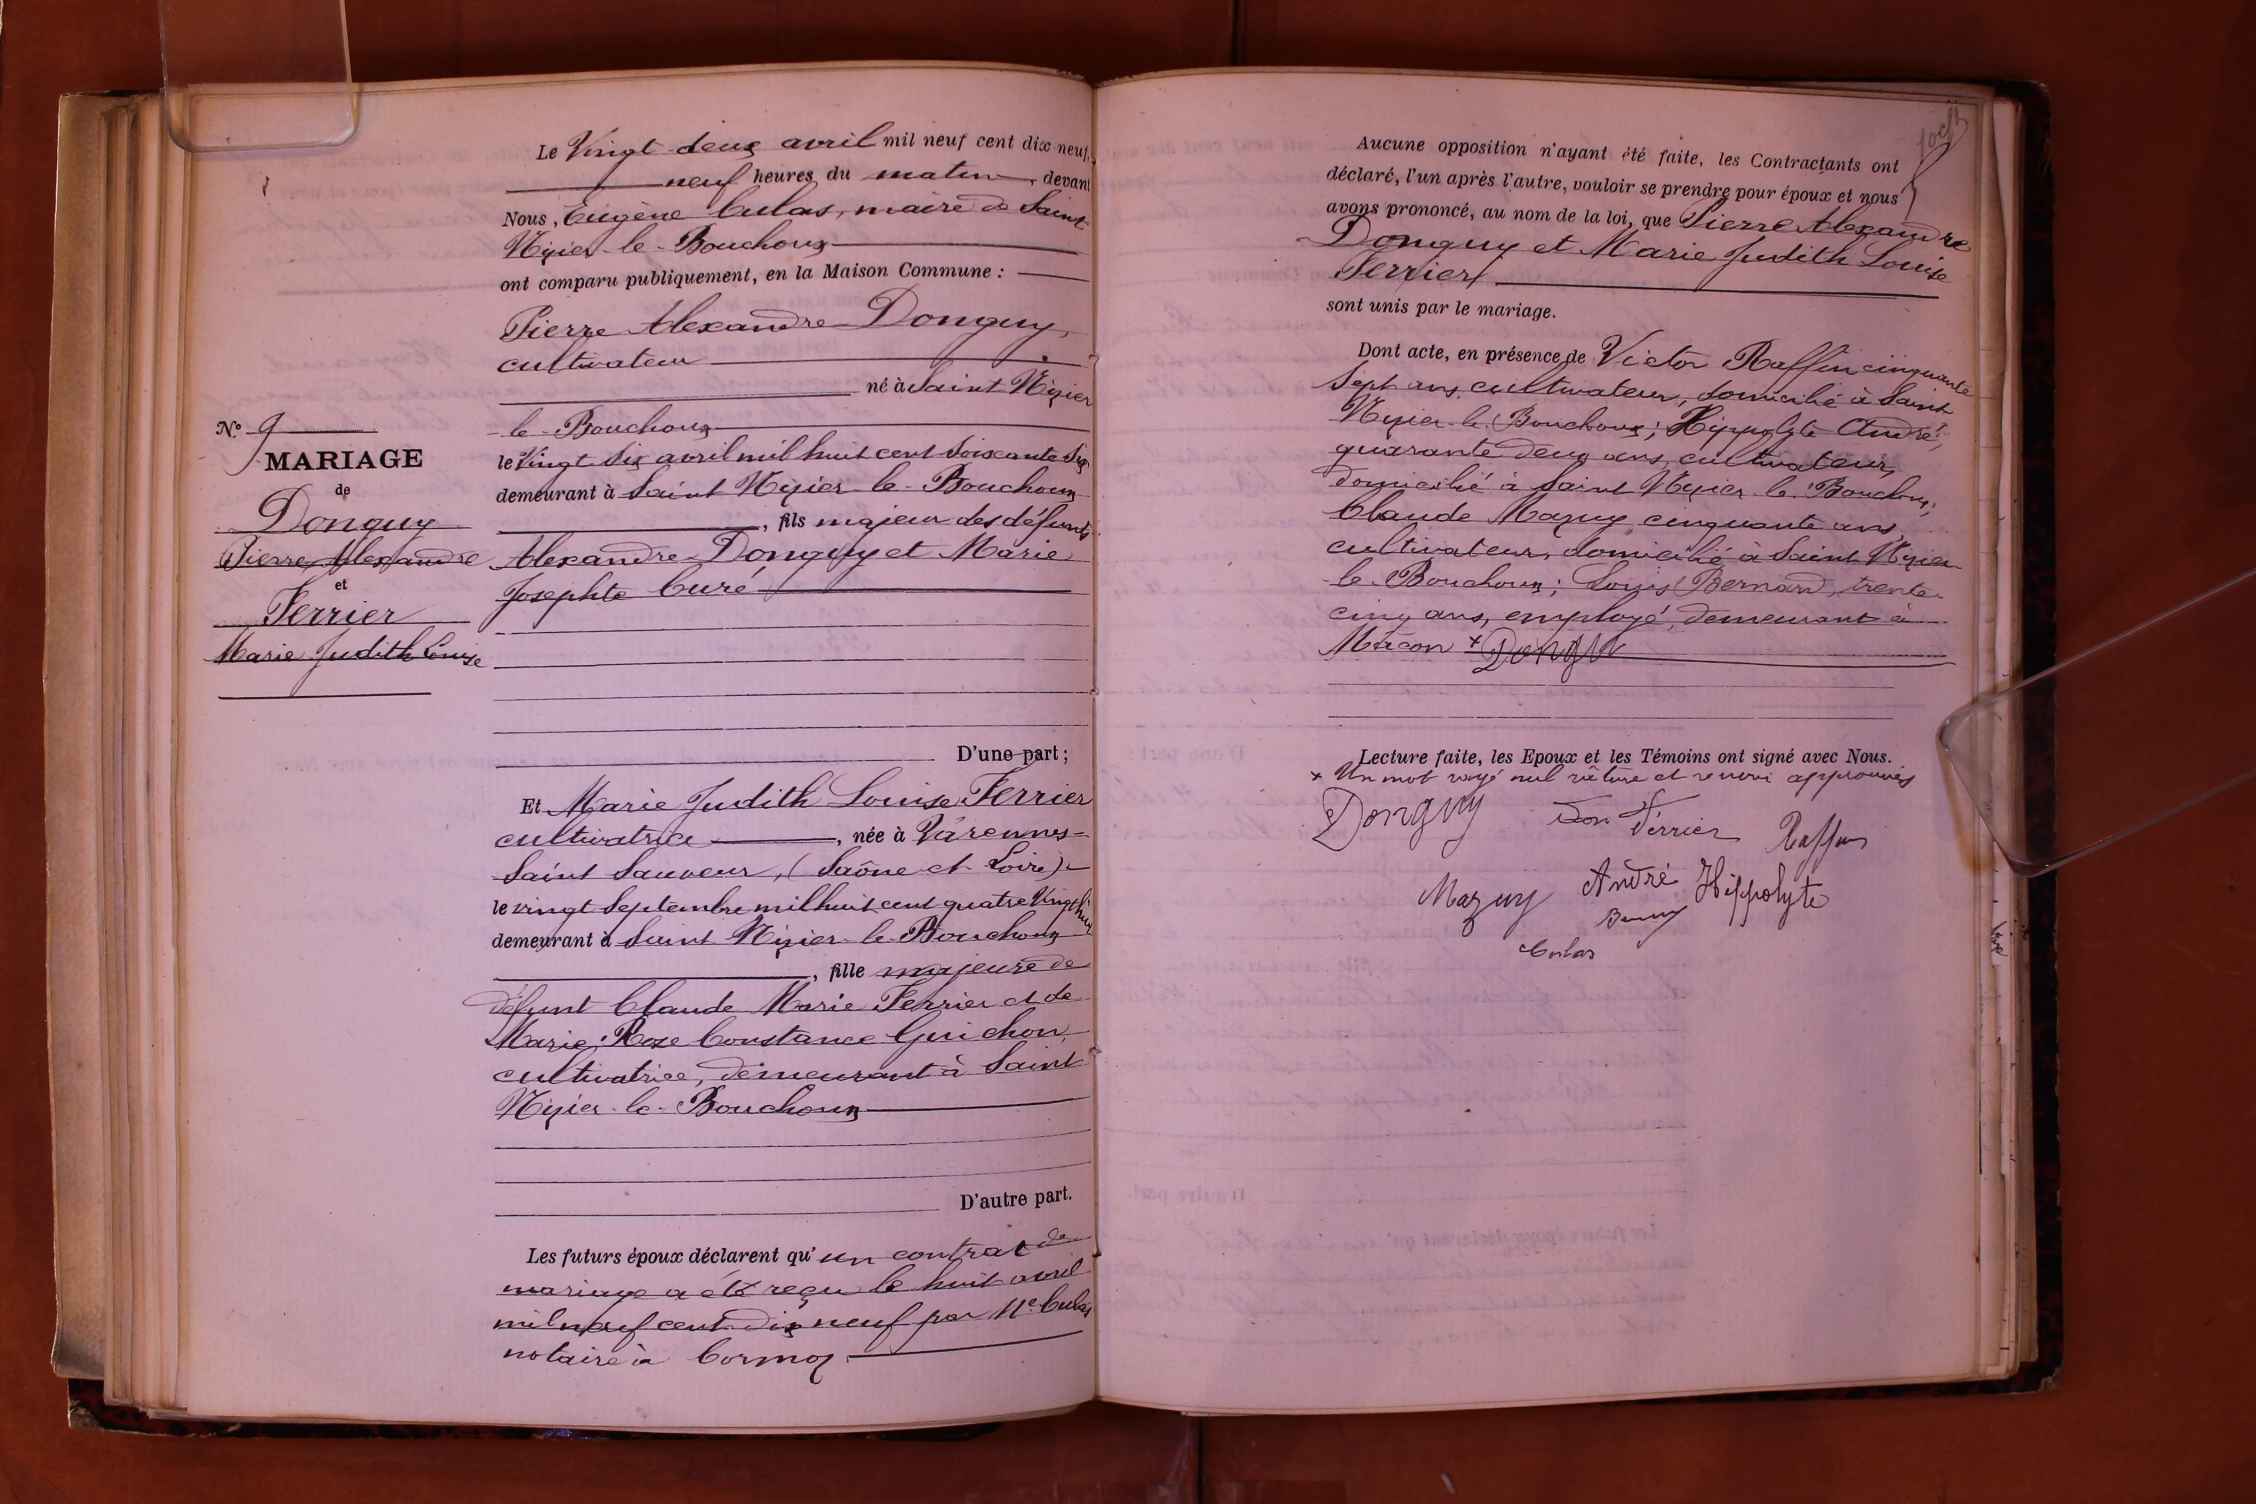 Le Vingt deux avril mil neuf cent dix neuf,
neuf heures du matin, devant
Nous, Eugène Culas, maire de Saint
Nizier-le-Bouchoux
ont comparu publiquement, en la Maison Commune :
Pierre Alexandre Donguy,
cultivateur
né à Saint Nizier
le-Bouchoux
le Vingt six avril mil huit cent soixante six
demeurant à Saint Nizier-le-Bouchoux
, fils majeur des défunts
Alexandre Donguy et Marie
Josephte Curé
D'une part ;
Et Marie Judith Louise Ferrier
cultivatrice, née à Varennes-
Saint Sauveur, (Saône et Loire)
le vingt septembre mil huit cent quatre Vingt huit
demeurant à Saint Nizier-le-Bouchoux
, fille majeure de
défunt Claude Marie Ferrier et de
Marie Rose Constance Guichon,
cultivatrice, demeurant à Saint
Nizier-le-Bouchoux
D'autre part.
Les futurs époux déclarent qu'un contrat de
mariage a été reçu le huit avril
mil neuf cent dix neuf par Me Culas
notaire à Cormoz.
No 9
MARIAGE
de
Donguy
Pierre Alexandre
et
Ferrier
Marie Judith Louise
Aucune opposition n'ayant été faite, les Contractants ont
déclaré, l'un après l'autre, vouloir se prendre pour époux et nous
avons prononcé, au nom de la loi, que Pierre Alexandre
Donguy et Marie Judith Louise
Ferrier
sont unis par le mariage.
Dont acte, en présence de Victor Raffin cinquante
sept ans, cultivateur, domicilié à Saint
Nizier-le-Bouchoux; Hippolyte André,
quarante deux ans, cultivateur,
domicilié à Saint Nizier-le-Bouchoux;
Claude Mazuy, cinquante ans,
cultivateur, domicilié à Saint Nizier
le-Bouchoux; Louis Bernard, trente
cinq ans, employé, demeurant à
Mâcon + Donguy
Lecture faite, les Epoux et les Témoins ont signé avec Nous.
+ Un mot rayé nul rature et renvoi approuvés
Donguy Ferrier Raffin
Mazuy André Hippolyte
Culas